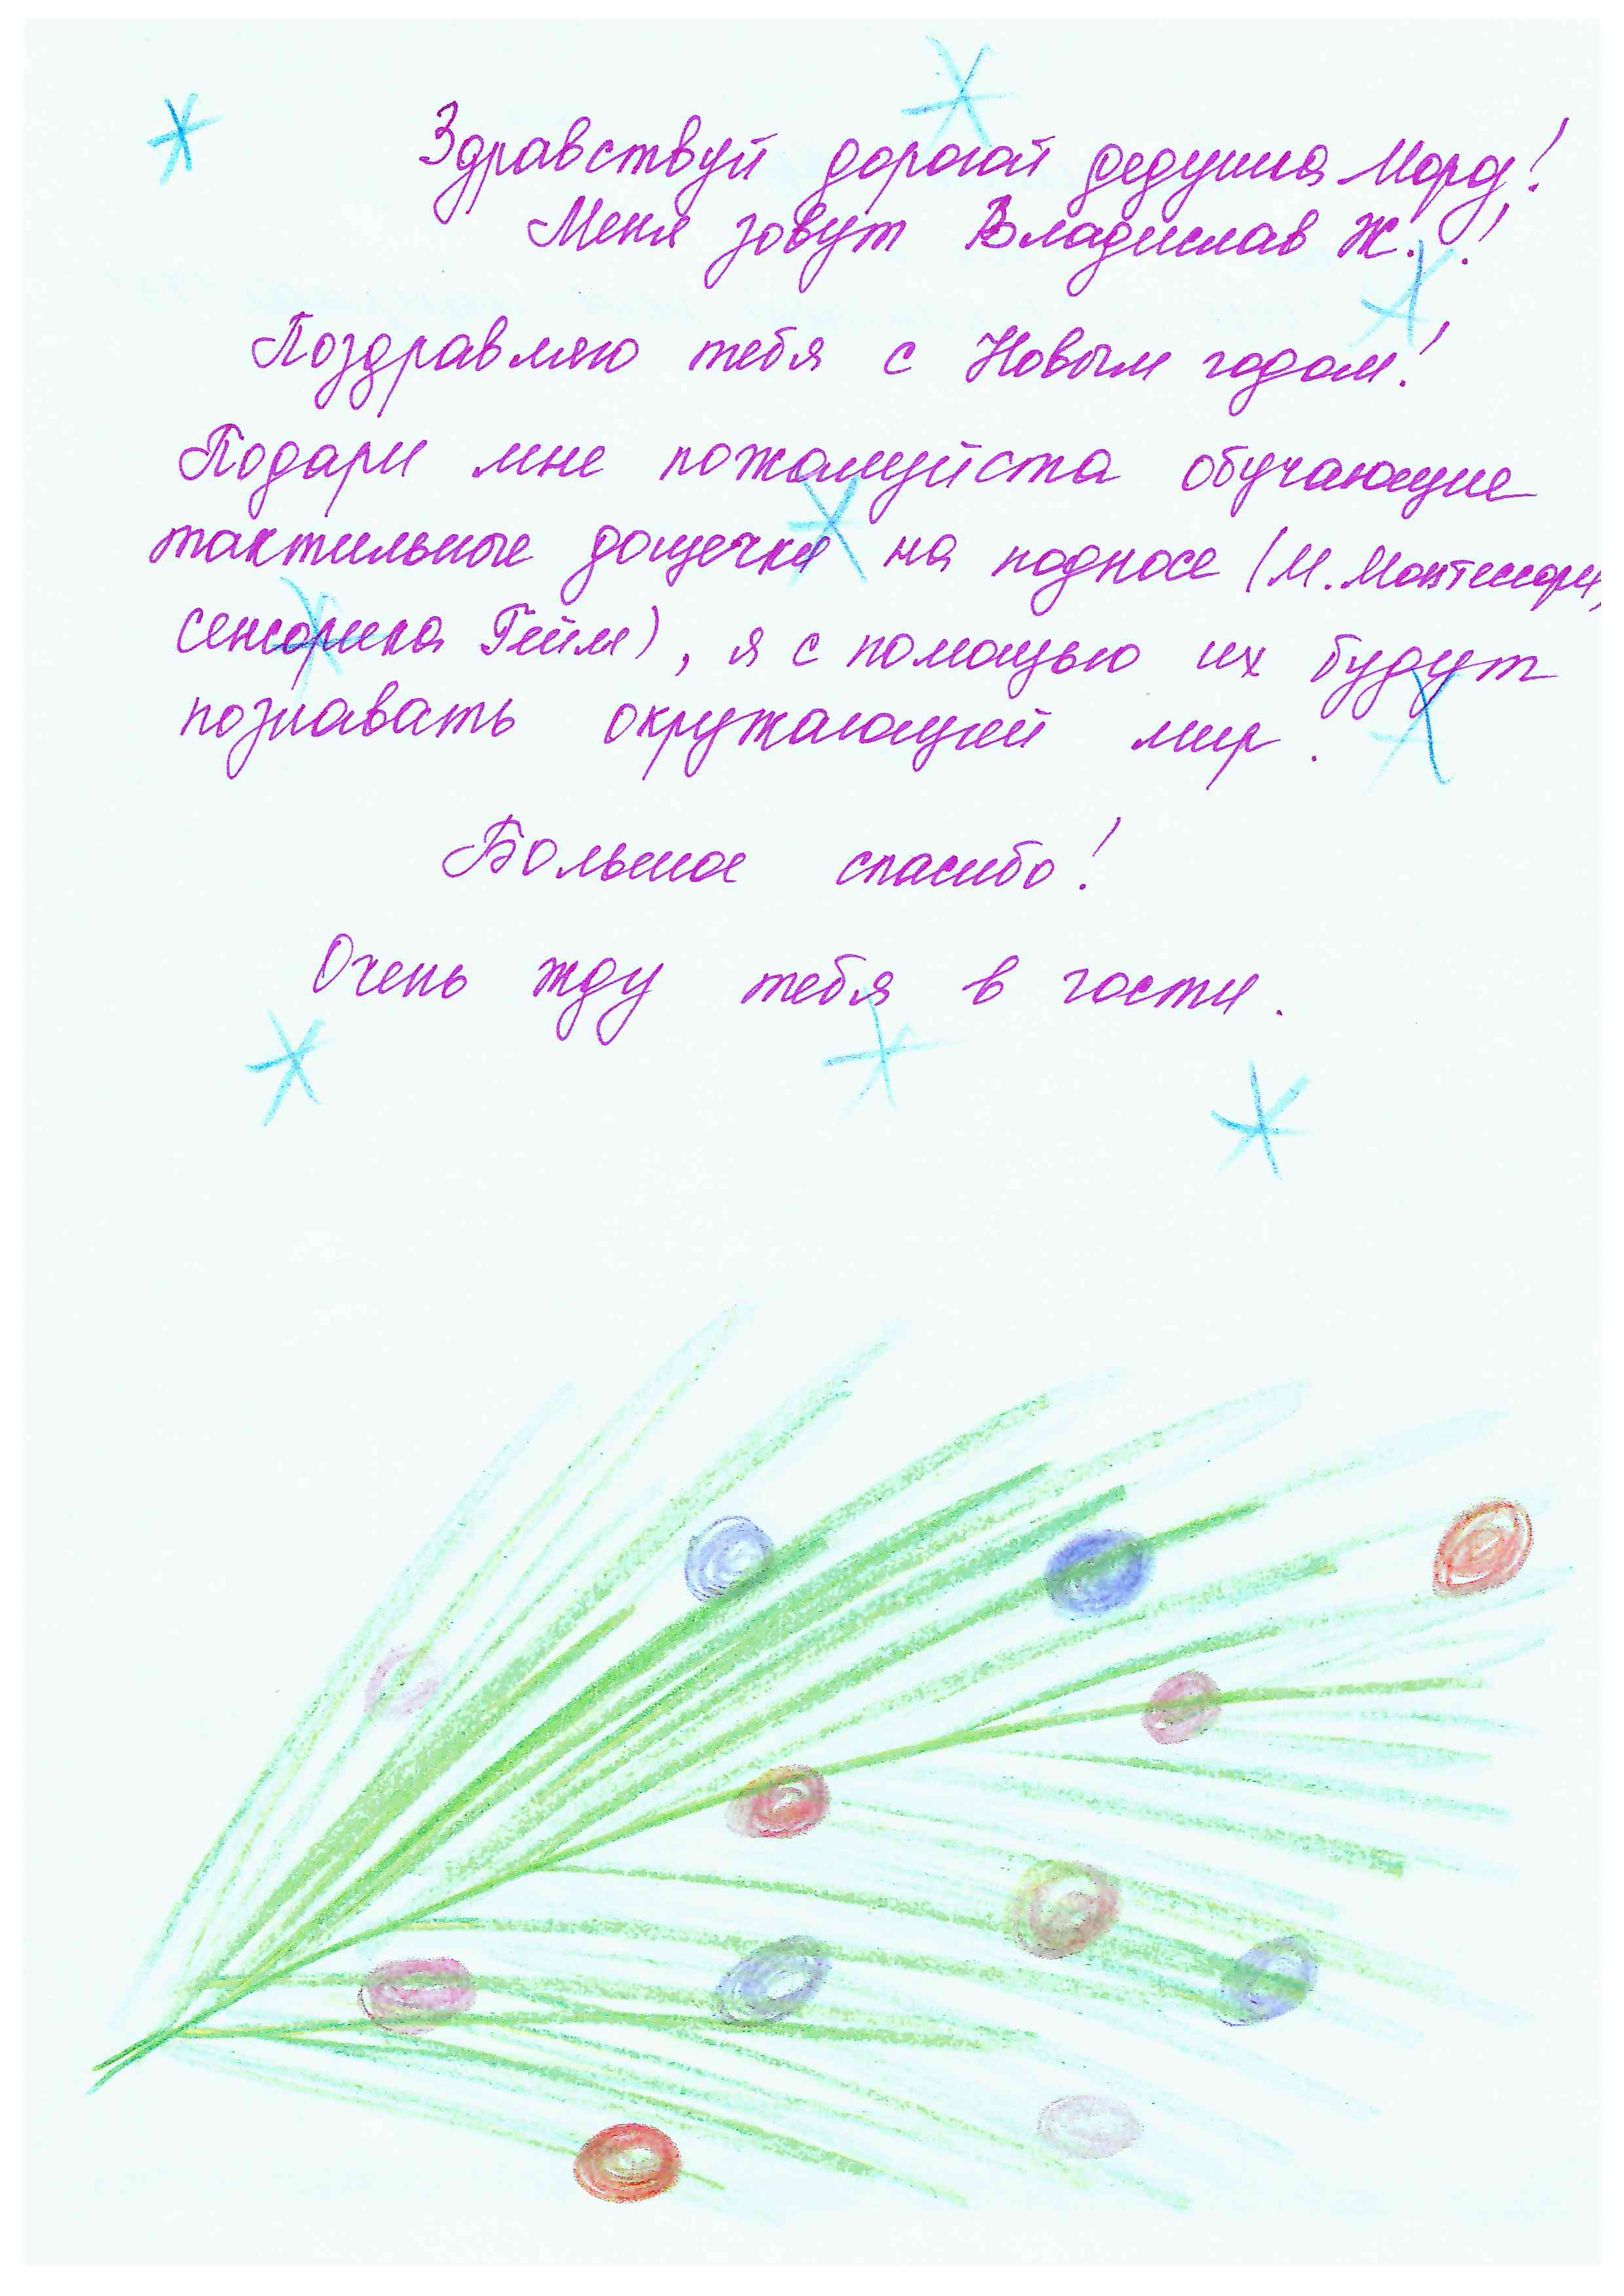 Здравствуй дорогой дедушка Мороз!
Меня зовут Владислав Ж.!
Поздравляю тебя с Новым годом!
Подари мне пожалуйста обучающие
тактильные дощечки на подносе (М. Монтессори,
сенсорика Гейм), я с помощью их будут
познавать окружающий мир.
Большое спасибо!
Очень жду тебя в гости.